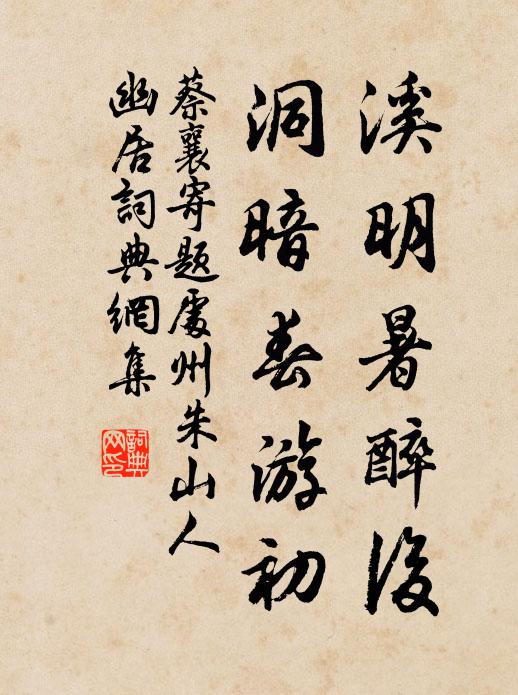 溪明暑醉後
洞暗春游初
蔡襄寄題處州朱山人
幽居詞典網集
詞典網印